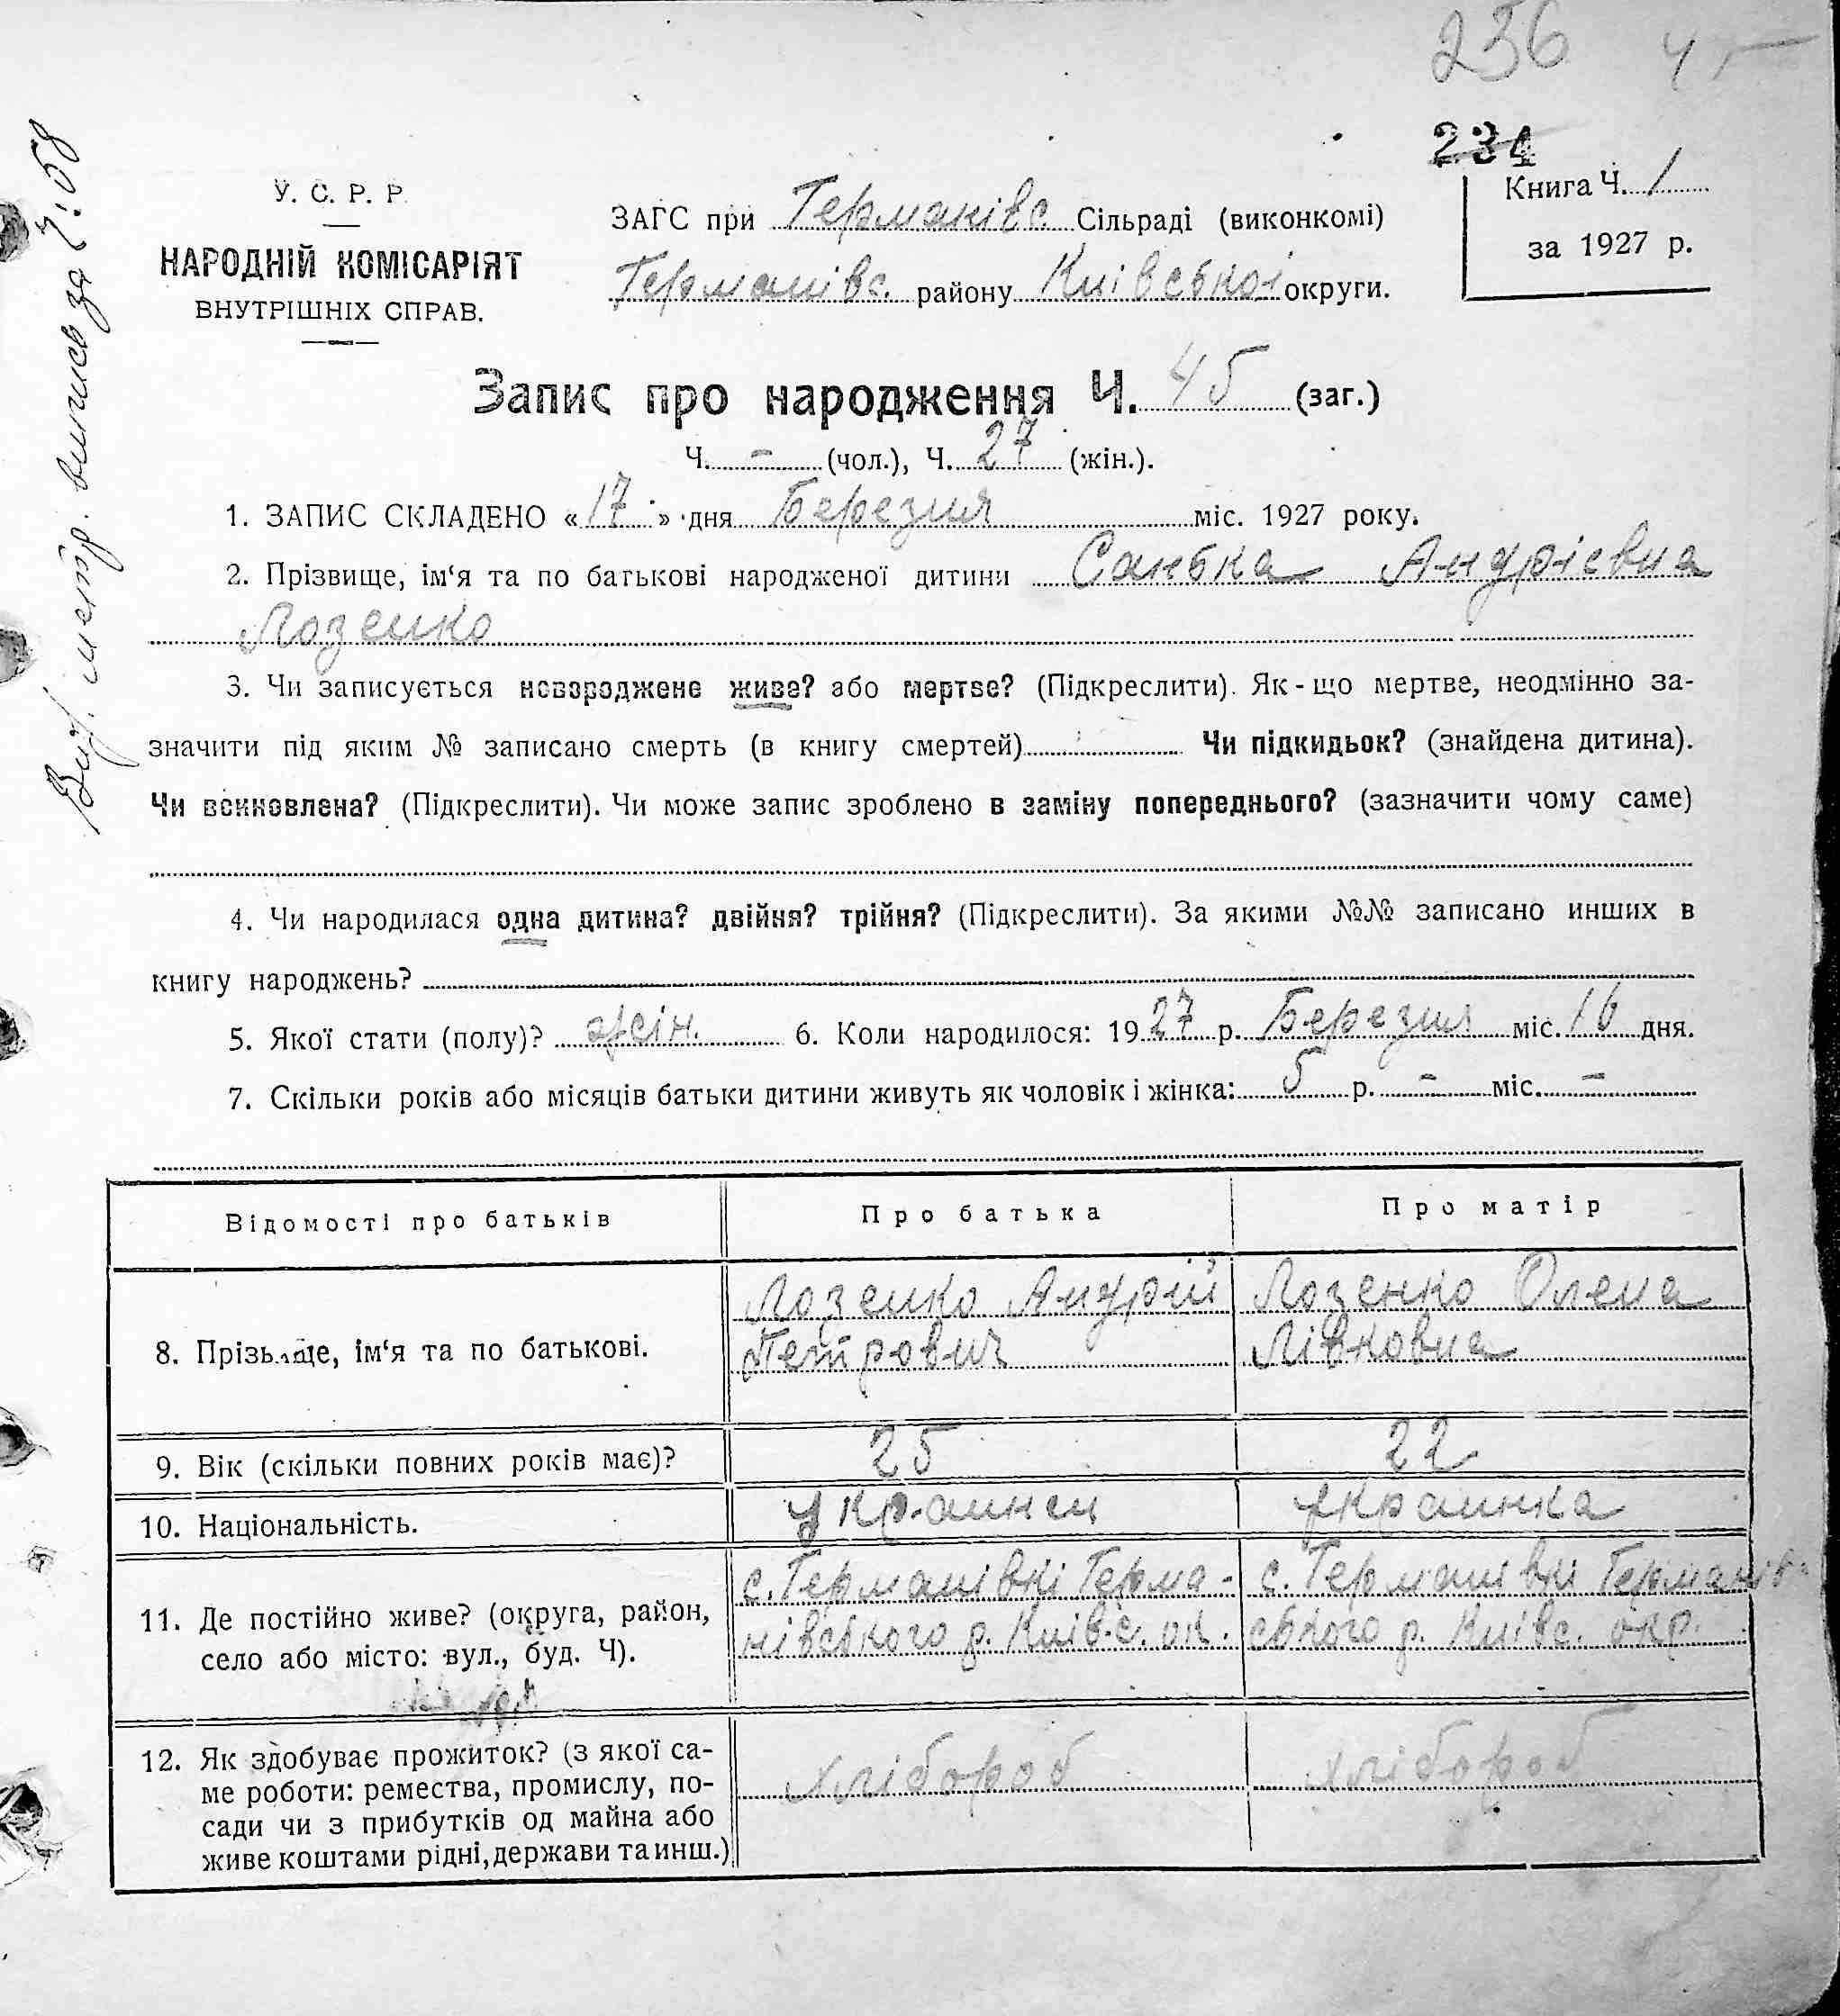 236 4
234
У. С. Р. Р.
НАРОДНІЙ КОМІСАРІЯТ
ВНУТРІШНІХ СПРАВ.
ЗАГС при Германівс. Сільраді (виконкомі)
Германівс. району Київської округи.
Книга Ч. 1
за 1927 р.
Вид. метр. випись за 7.58
Запис про народження Ч. 45 (заг.)
Ч. - (чол.), Ч. 27 (жін.).
1. ЗАПИС СКЛАДЕНО «17» дня Березня міс. 1927 року.
2. Прізвище, ім‘я та по батькові народженої дитини Санька Андрієвна
Лозенко
3. Чи записується новороджене живе? або мертве? (Підкреслити). Як-що мертве, неодмінно за-
значити під яким № записано смерть (в книгу смертей) Чи підкидьок? (знайдена дитина).
Чи всиновлена? (Підкреслити). Чи може запис зроблено в заміну попереднього? (зазначити чому саме)
4. Чи народилася одна дитина? двійня? трійня? (Підкреслити). За якими №№ записано инших в
книгу народжень?
5. Якої стати (полу)? жін. 6. Коли народилося: 1927 р. Березня міс. 16 дня.
7. Скільки років або місяців батьки дитини живуть як чоловік і жінка: 5 р. - міс. -
Відомості про батьків Про батька Про матір
8. Прізвище, ім‘я та по батькові.
Лозенко Андрій
Петрович
Лозенко Олена
Лівковна
9. Вік (скільки повних років має)? 25 22
10. Національність. украинец украинка
11. Де постійно живе? (округа, район,
село або місто: вул., буд. Ч).
с. Германівкі Герма-
нівського р. Київс. ок.
с. Германівкі Германів-
ського р. Київс. окр.
12. Як здобуває прожиток? (з якої са-
ме роботи: ремества, промислу, по-
сади чи з прибутків од майна або
живе коштами рідні, держави та инш.)
хлібороб
хлібороб